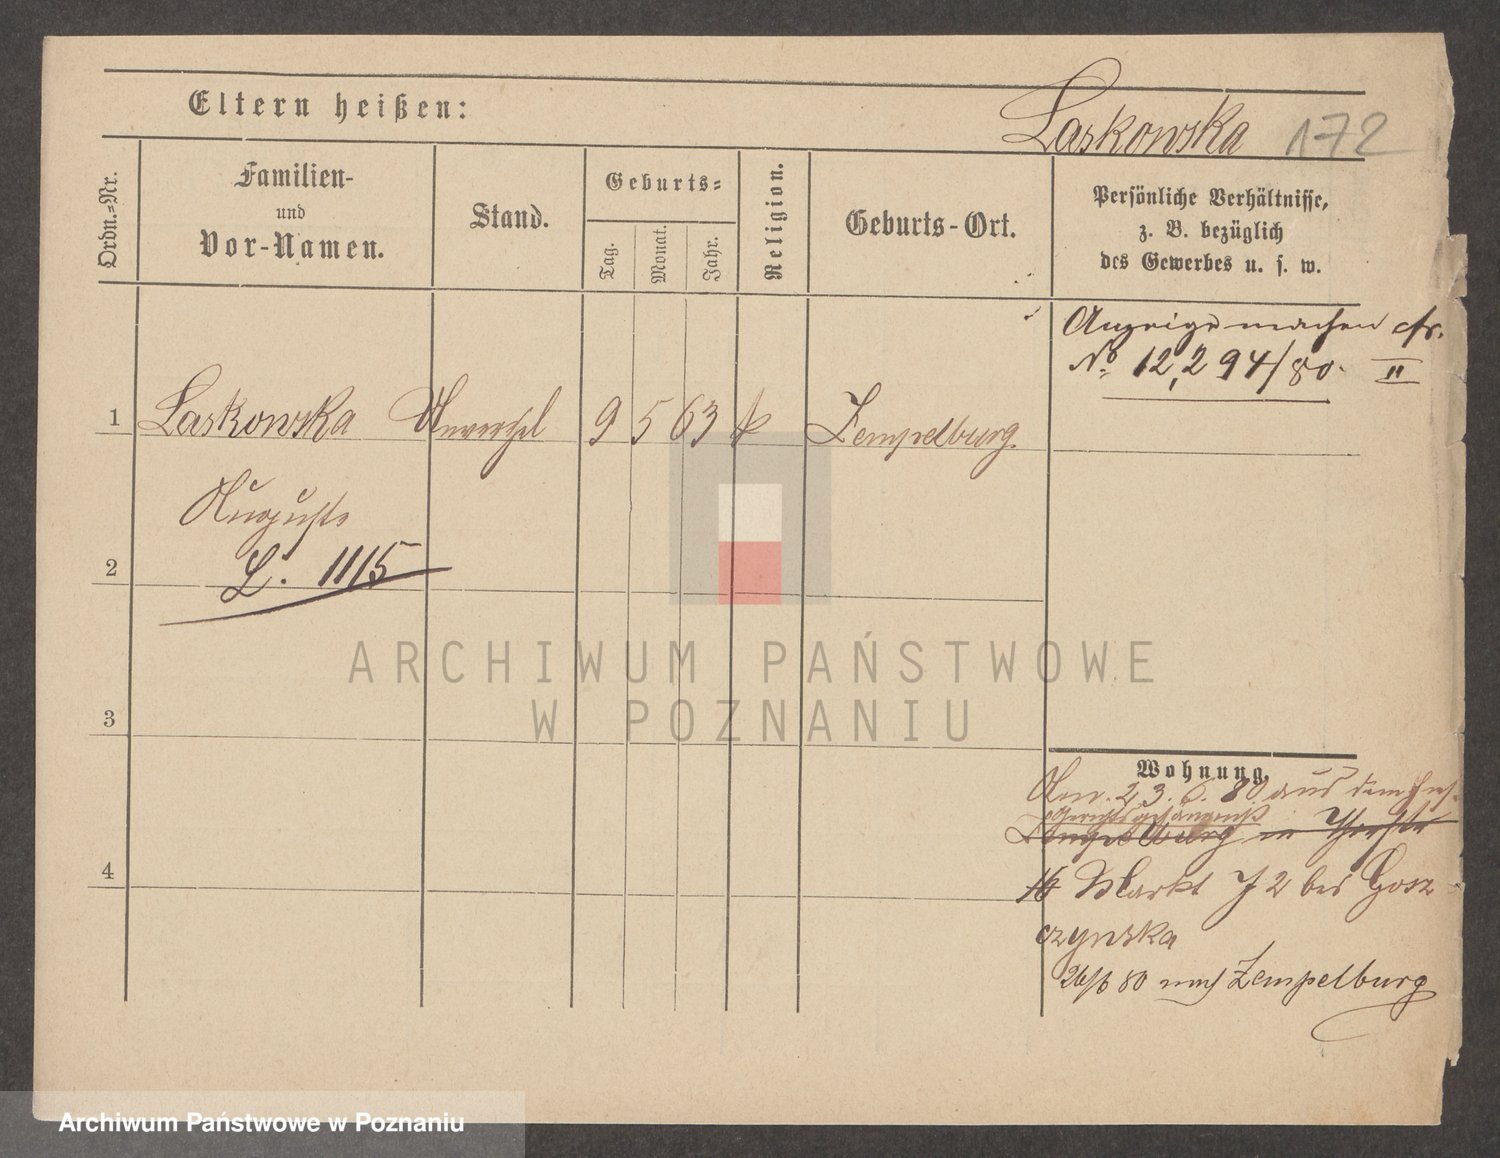 Eltern heißen:
Laskowska 172
Ordn.=Nr.
Familien-
und
Vor-Namen.
Stand.
Geburts=
Tag.
Monat.
Jahr.
Religion.
Geburts-Ort.
Persönliche Verhältnisse,
z. B. bezüglich
des Gewerbes u. s. w.
Anzeige machen cfr.
No 12,294/80. II
1 Laskowska Unverehel 9 5 63 k Zempelburg
Auguste
2 L. 1115
ARCHIWUM PAŃSTWOWE
W POZNANIU
3
Wohnung.
An. 23. 6. 80. aus dem
Gerichtsgefängniß
Zempelburg in
4
Markt 72 bei Gosz
czynska
80 nach Zempelburg
Archiwum Państwowe w Poznaniu